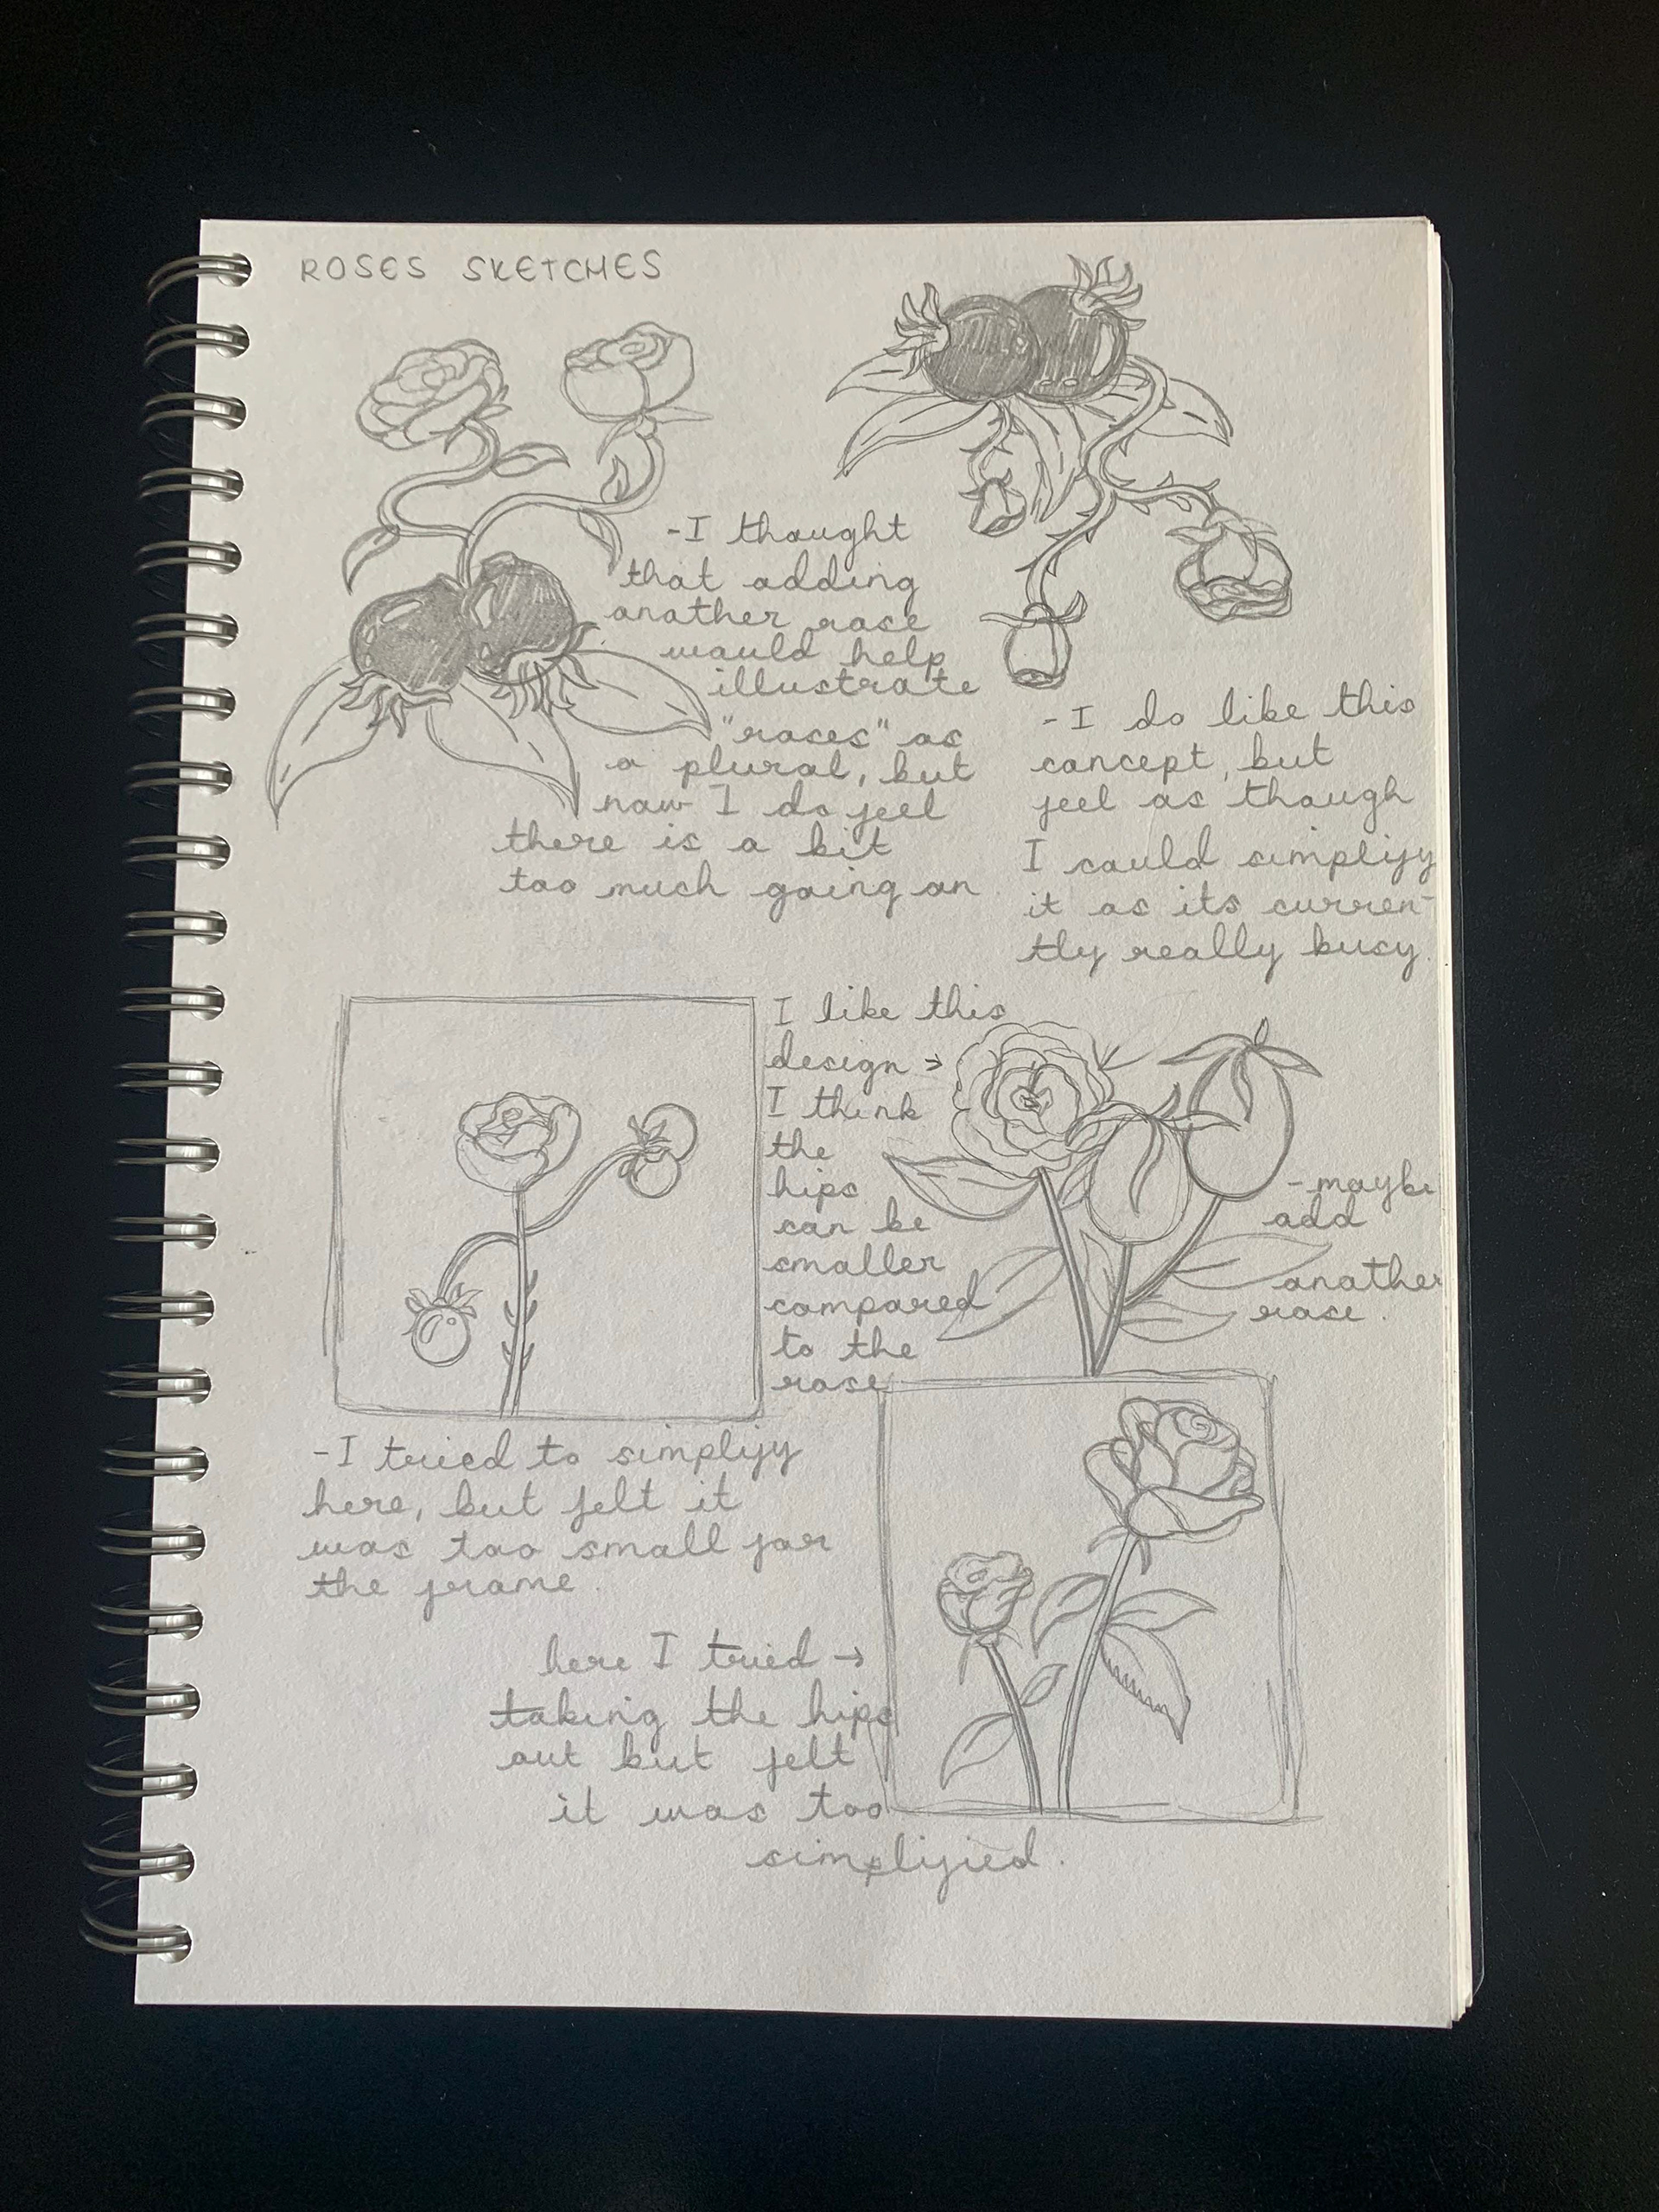 ROSES SKETCHES
-I thought
that adding
another rose
would help
illustrate
"roses" as
a plural, but
now I do feel
there is a bit
too much going on
-I do like this
concept, but
feel as though
I could simplify
it as its curren-
tly really busy.
I like this
design →
I think
the
hips
can be
smaller
compared
to the
rose
-maybe
add
another
rose.
-I tried to simplify
here, but felt it
was too small for
the frame.
here I tried →
taking the hips
out but felt
it was too
simplified.